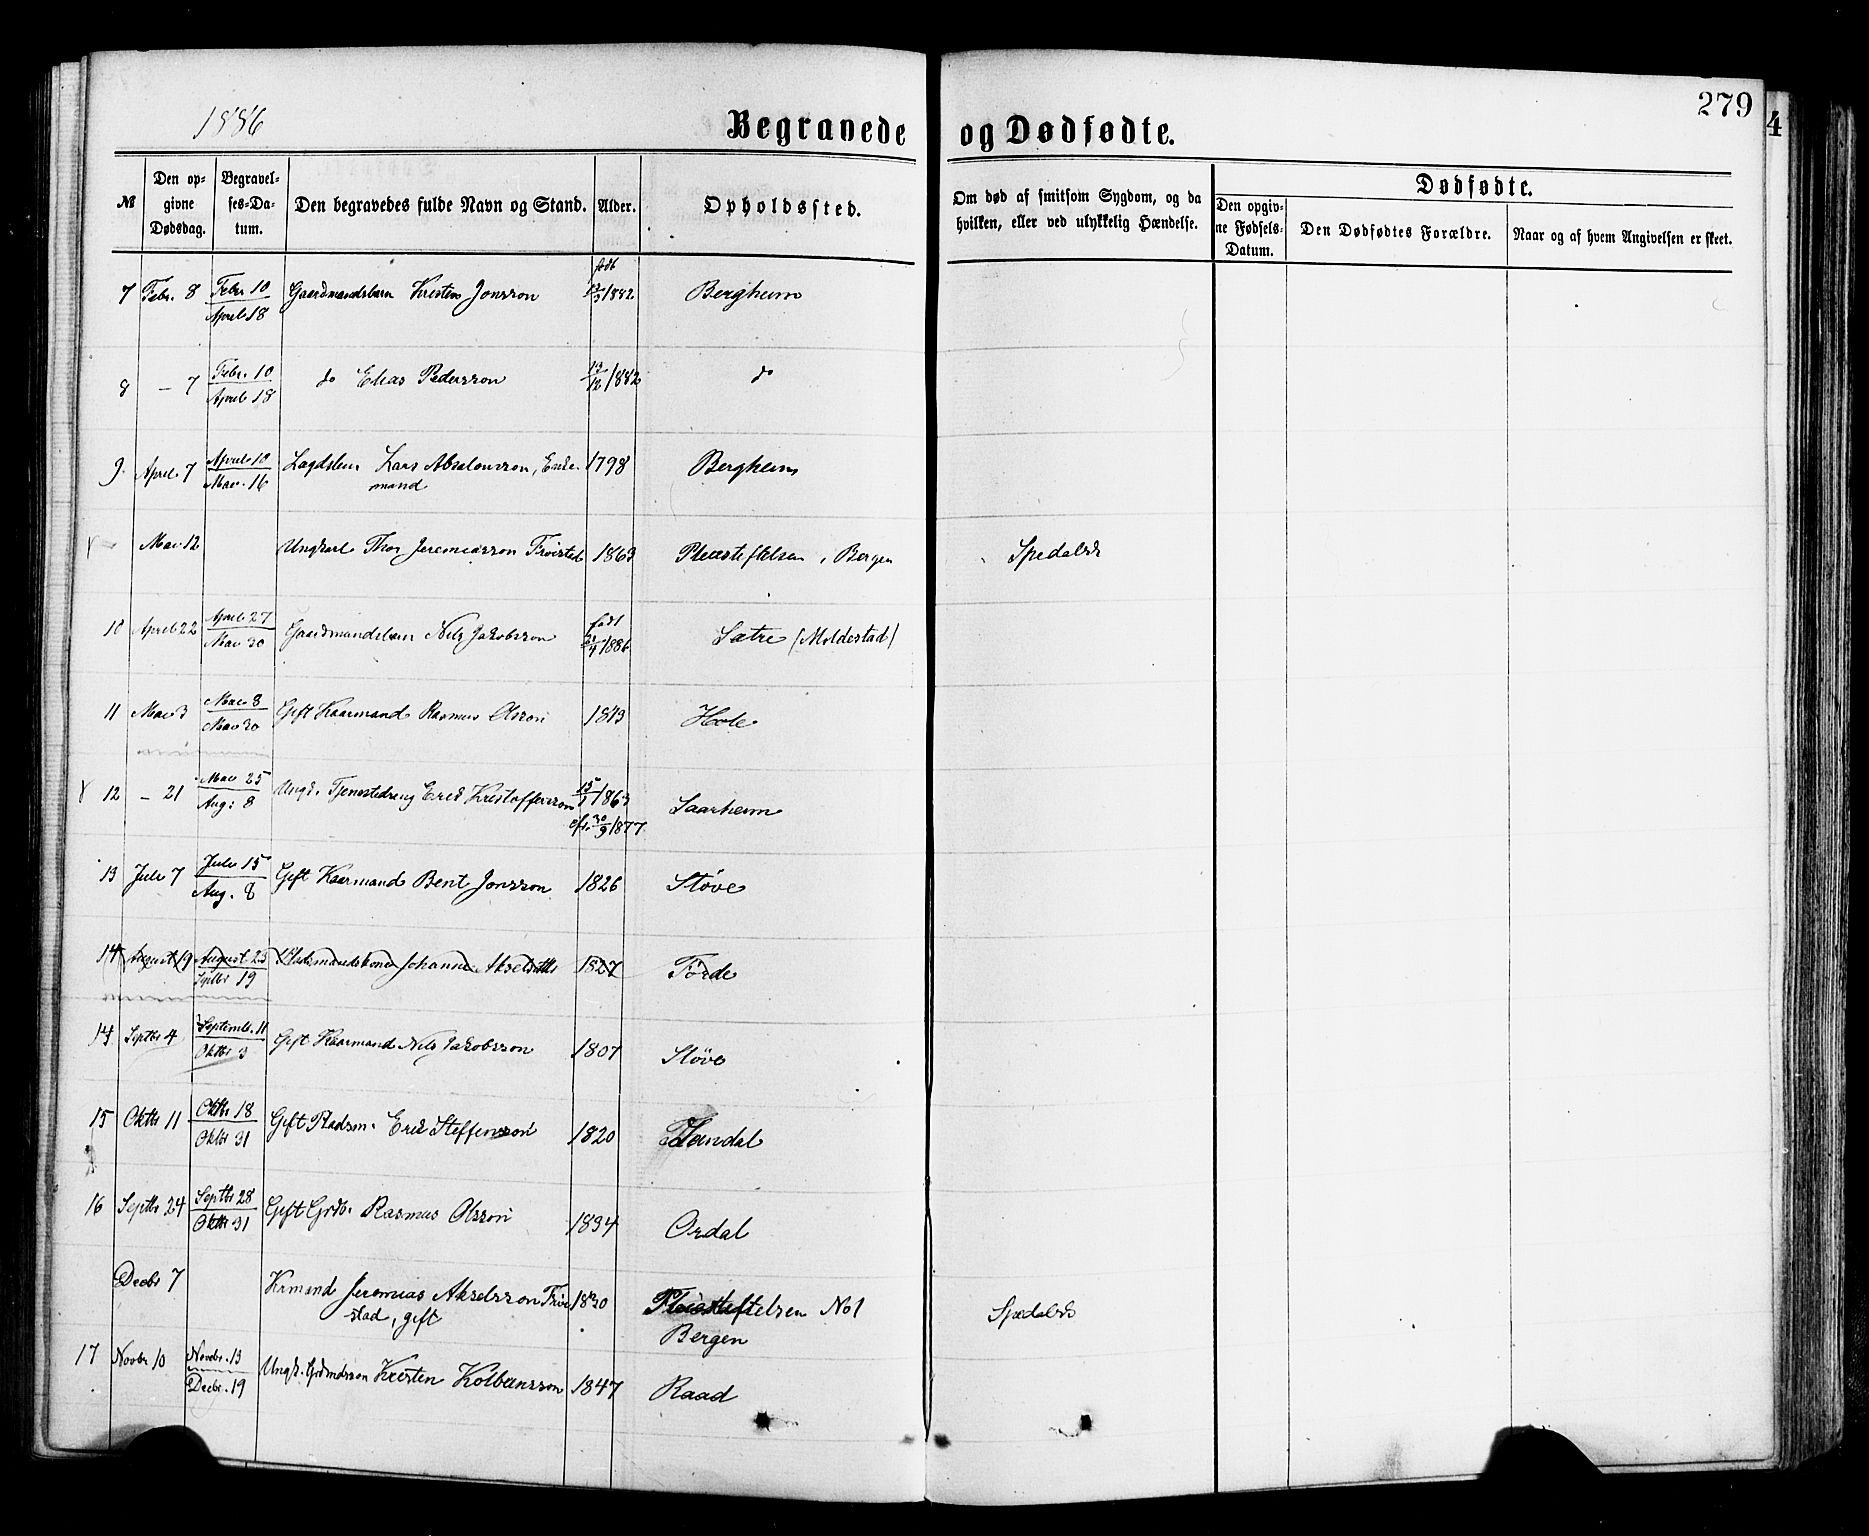 1886
279
4
Begravede og Dødfødte.
№
Den opgivne Dødsdag.
Begravelses-Datum.
Den begravedes fulde Navn og Stand.
Alder.
Opholdssted.
Om død af smitsom Sygdom, og da hvilken, eller ved ulykkelig Hændelse.
Dødfødte.
Den opgivne Fødsels-Datum.
Den Dødfødtes Forældre.
Naar og af hvem Angivelsen er skeet.
7 Febr. 8 Febr. 10 April 18 Gaardmandsbarn Kristen Jonsson født 1882 Bergheim
8 – 7 Febr. 10 April 18 do Elias Pedersson 12/1882 do
9. April 7 April 10 Mai 16 Lars Absalonsson, Enke- 1798 Bergheim
mand
Mai 12 Ungkarl Thor Jeremiasson Froistad 1863 Pleiestiftelsen, Bergen Spedalsk
10 April 22 April 27 Mai 30 Gaardmandsbarn Nils Jakobsson født 4/1886 Sætre (Moldestad)
11 Mai 3 Mai 8 Mai 30 Gift Kaarmand Rasmus Olsson 1813 Hole
12 – 21 Mai 25 Aug: 8 Ungk. Tjenestedreng Erik Kristoffersson 15/1 1863 Saarheim
cfr. 30/9 1877
13 Juli 7 Juli 15 Aug. 8 Gift Kaarmand Bent Jonsson 1826 Støve
14 August 19 August 23 Septbr 19 Pladsmandskone Johanne Akselsdtr 1827 Førde
14 Septbr 4 Septemb. 11 Oktbr 3 Gift Kaarmand Nils Jakobsson 1807 Støve
15 Oktbr 11 Oktbr 18 Oktbr 31 Gift Pladsm. Erik Steffensson 1820
16 Septbr 24 Septbr 28 Oktbr 31 Gift Grdb. Rasmus Olsson 1834 Ordal
Decbr 7 Krmand Jeremias Akselsson Frøi- 1820 Pleiestiftelsen No 1 Spedalsk
stad, gift Bergen
17 Novbr. 10 Novbr. 13 Decbr. 19 Ungk. Grdmdssøn Kristen Kolbeinsson 1847 Raad